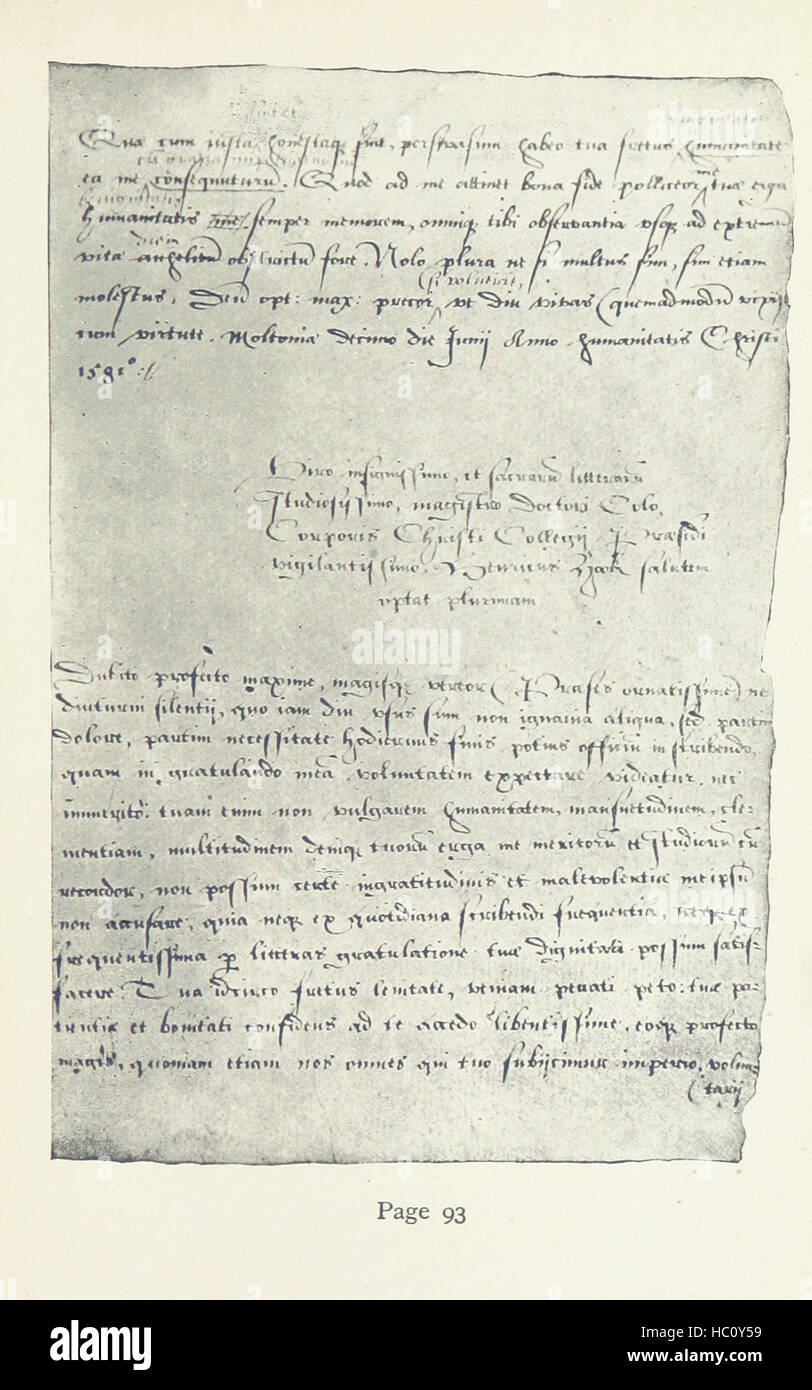 Quæ cum iusta honestaq; sint, persuasum habeo tua fretus humanitate
ea me consequuturū. Quod ad me attinet bona fide polliceor me tuæ erga
humanitatis semper memorem, omniq; tibi observantia usq; ad extremum
diem
vitæ anhelitum obstrictum fore. Nolo plura ne si multus sim, sim etiam
(si voluerit)
molestus. Deū opt: max: precor, ut diu vivas (quemadmodū vixisti
cum virtute. Moltoniæ decimo die Junij Anno humanitatis Christi
1581º
Viro insignissimo, et sacrarū litterarū
studiosissimo, magistro Doctori Colo,
Corporis Christi Collegij Præsidi
vigilantissimo. Henricus Hook salutem
optat plurimam
Dubito profecto maxime, magisq; vereor (Præses ornatissime) ne
diuturni silentij, quo iam diu usus sum non ignavia aliqua, sed partim
dolore, partim necessitate hodiernus finis potius officiū in scribendo,
quam in gratulando meā voluntatem expectare videatur. nec
immerito: tuam enim non vulgarem humanitatem, mansuetudinem, cle-
mentiam, multitudinem deniq; tuorū erga me meritorū et studiorum cū
recordor, non possum certe ingratitudinis et malevolentiæ meipsū
non accusare, quia neq; ex quotidiana scribendi frequentia, neq; ex
frequentissima per litteras gratulatione tuæ dignitati possum satis-
facere. Tua idcirco fretus lenitate, veniam peccati peto: tuæ pa-
tientiæ et bonitati confidens ad te accedo libentissime, eoq; profecto
magis, quoniam etiam nos omnes qui tuo subijcimur imperio, volun-
tarij
Page 93
alamy
a
alamy
HC0Y59
www.alamy.com